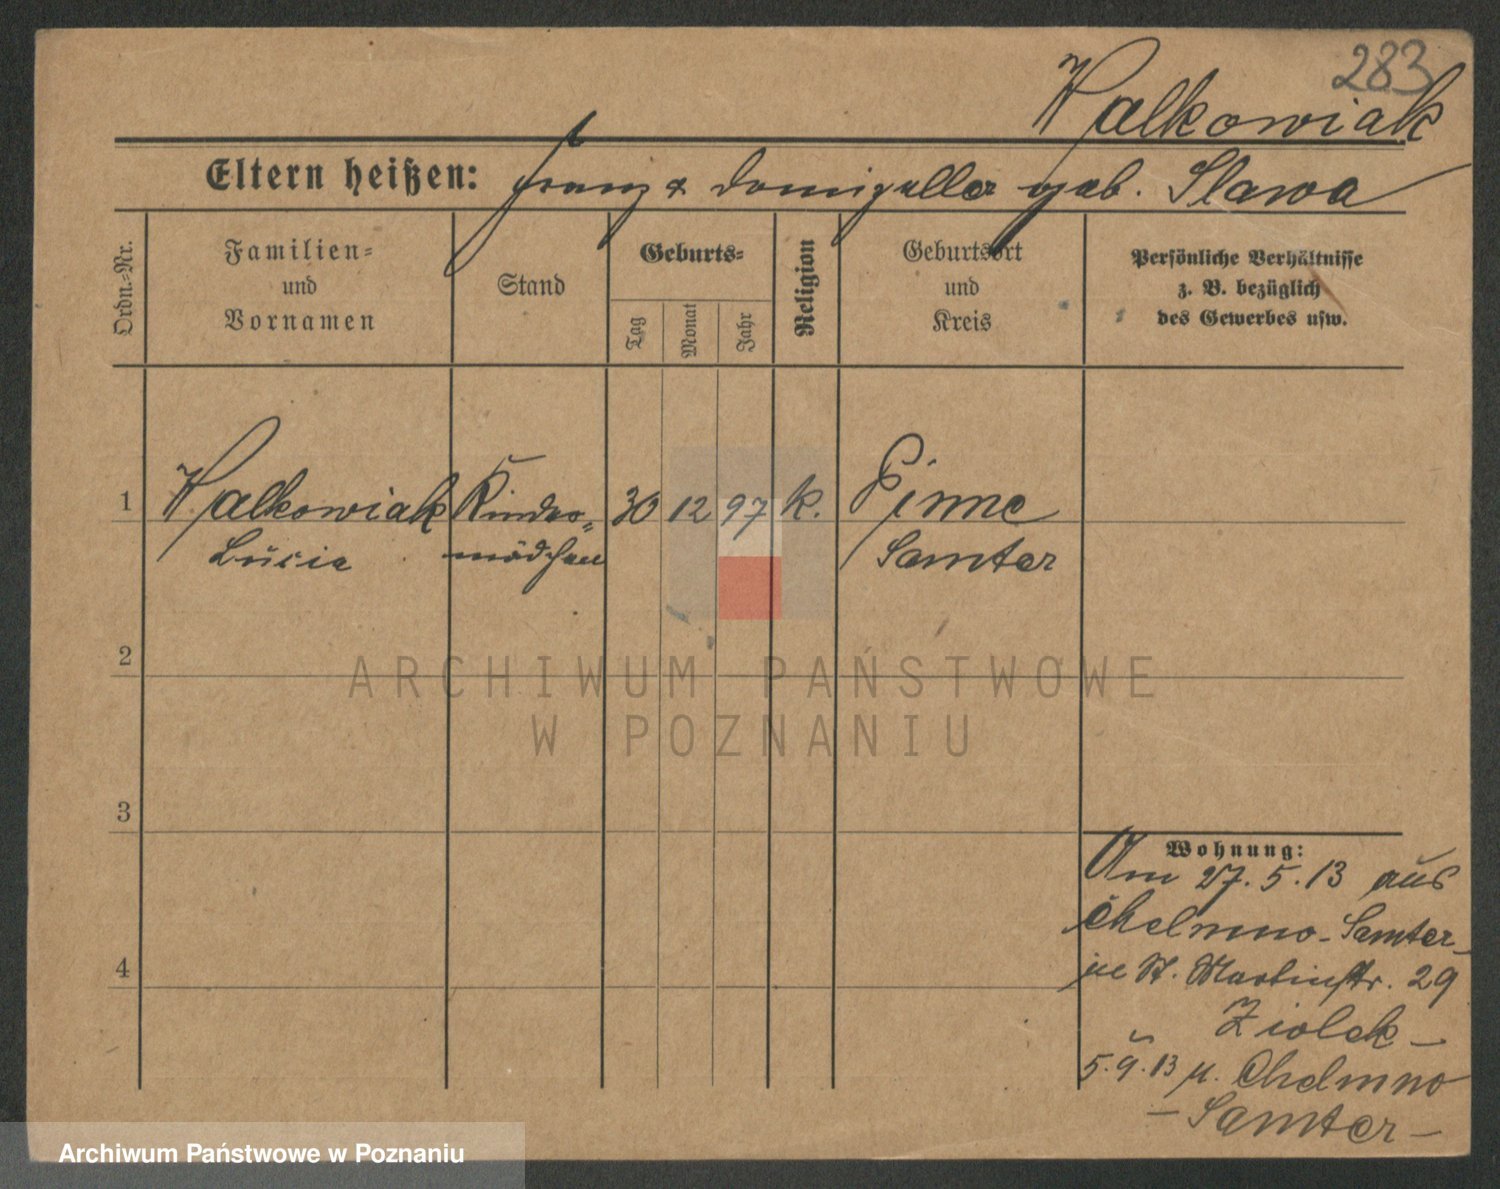 283
Walkowiak
Eltern heißen: Franz & geb. Slawa
Ordn.-Nr.
Familien-
und
Vornamen
Stand
Geburts-
Tag
Monat
Jahr
Religion
Geburtsort
und
Kreis
Persönliche Verhältnisse
z. B. bezüglich
des Gewerbes usw.
1 Walkowiak Kinder= 30 12 97 k. Pinne
Lucie mädchen Samter
2
ARCHIWUM PAŃSTWOWE
W POZNANIU
3
Wohnung:
Am 27.5.13 aus
Chelmno-Samter-
St. Martinstr. 29
Ziolek-
5.9.13 Chelmno
-Samter-
4
Archiwum Państwowe w Poznaniu